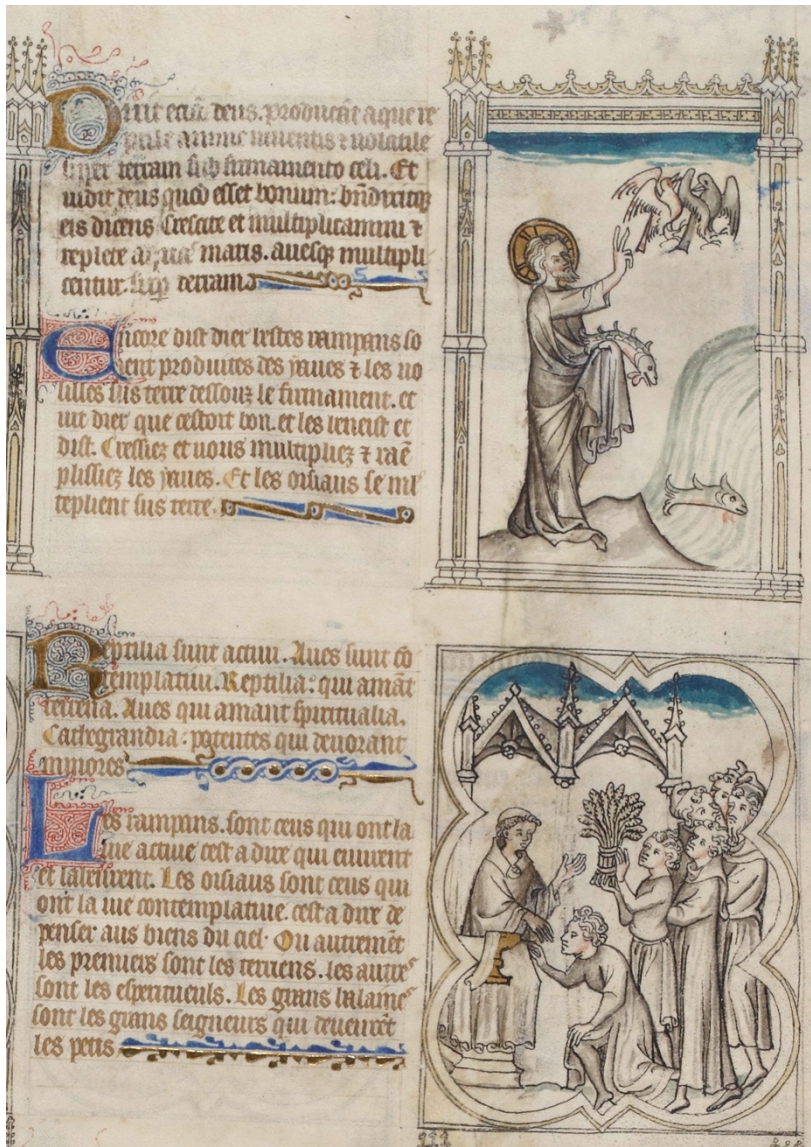 Dixit etiā deus. producāt aque re
ptile anime viventis ⁊ volatile
super terram sub firmamento celi. Et
vidit deus quod esset bonum: bn̄dixitqȝ
eis dicens Crescite et multiplicamini ⁊
replete aquas maris. avesqȝ multipli
centur. sup̄ terram
Encore dist diex bestes rampans so
ient produites des iaues ⁊ les vo
lilles sus terre dessouz le firmament. et
vit diex que cestoit bon. et les beneist et
dist. Cressiez et vous multipliez ⁊ raē
plissiez les iaues. Et les oisiaus se ml
teplient sus terre.
Reptilia sunt activi. Aves sunt cō
templativi. Reptilia: qui amāt
terrena. Aves qui amant spiritualia.
Cathegrandia: potentes qui devorant
minores
Les rampans. sont ceus qui ont la
vie active cest a dire qui euvrent
et labeurent. Les oisiaus sont ceus qui
ont la vie contemplative. cest a dire de
penser aus biens du ciel. Ou autremēt
les premiers sont les terriens. les autrˢ
sont les esperitueuls. Les grans balaineˢ
sont les grans seigneurs qui deveurēt
les petis